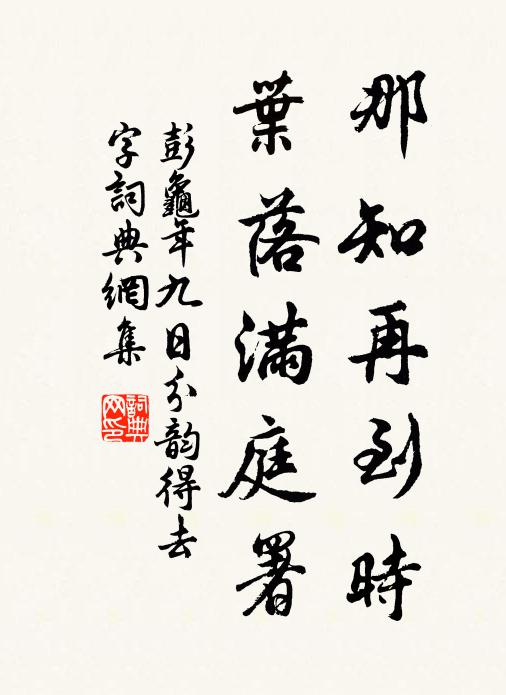 那知再到時
葉落滿庭署
彭龜年九日分韵得去
字詞典網集
詞典
网印